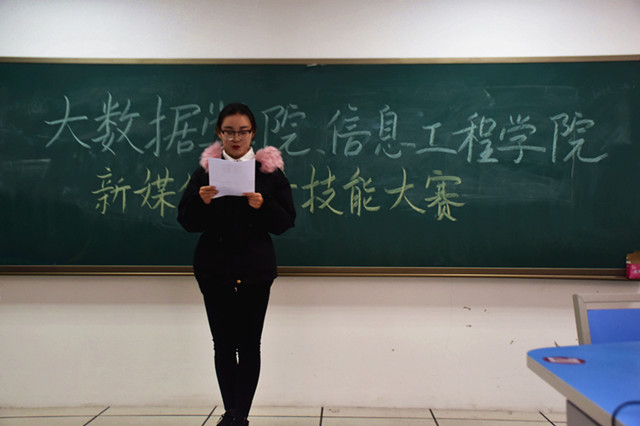 大数据学院 信息工程学院
新媒 技能大赛